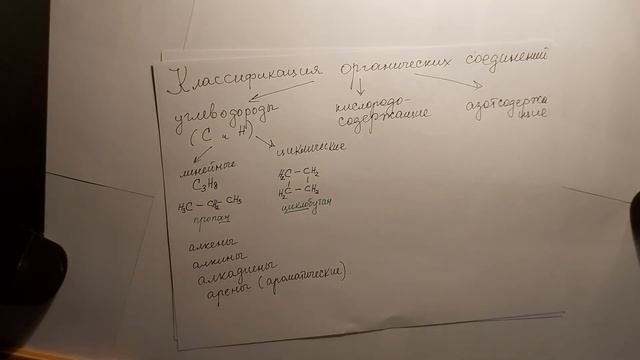 Классификация органических соединений
углеводороды
(С и Н)
кислородо-
содержащие
азотсодержа
щие
линейные
C₃H₈
H₃C – CH₂ – CH₃
пропан
циклические
H₂C – CH₂
H₂C – CH₂
циклобутан
алкены
алкины
алкадиены
арены (ароматические)